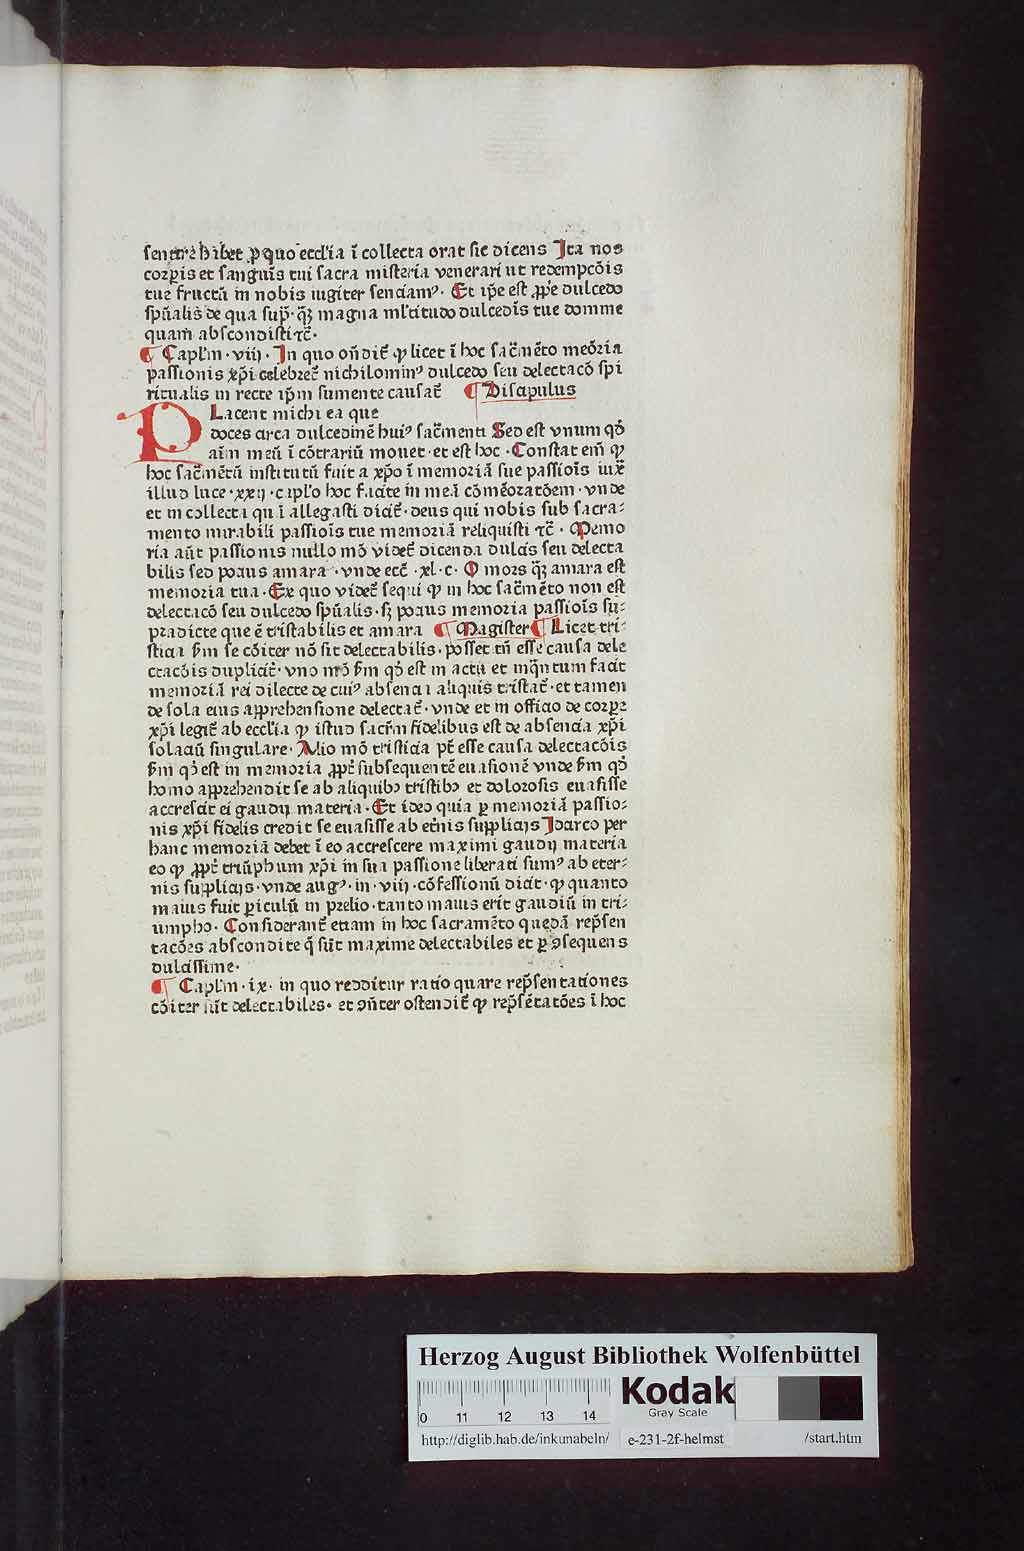 sentire habet ꝓ quo eccl'ia ī collecta orat sic dicens Ita nos
corꝑis et sanguīs tui sacra misteria venerari ut redempcōis
tue fructū in nobis iugiter senciamꝰ· Et ip̄e est ꝓpe dulcedo
sp̄ualis de qua sup̄· qꝫ magna ml'titudo dulcedīs tue domine
quam abscondisti ⁊c̄·
¶ Capl'm · viij · In quo on̄dit̄ ꝙ licet ī hoc sac̄mēto meōria
passionis xp̄i celebret̄ nichilominꝰ dulcedo seu delectacō spi
ritualis in recte ip̄m sumente causat̄ ¶ Discipulus
PLacent michi ea que
doces circa dulcedinē huiꝰ sac̄menti Sed est vnum qđ
aīm meū ī cōtrariū mouet · et est hoc · Constat em̄ ꝙ
hoc sac̄mētū institutū fuit a xp̄o ī memoriā sue passiōis iux̄
illud luce · xxij · capl'o hoc facite in meā cōmēoratōem · vnde
et in collecta quā allegasti dicit̄ · deus qui nobis sub sacra⸗
mento mirabili passiōis tue memoriā reliquisti ⁊c̄ · Memo
ria aūt passionis nullo mō videt̄ dicenda dulcis seu delecta
bilis sed pocius amara · vnde ecc̄ · xl · c · O mors qꝫ amara est
memoria tua · Ex quo videt̄ sequi ꝙ in hoc sac̄mēto non est
delectacō seu dulcedo sp̄ualis · sꝫ pocius memoria passiōis su⸗
pradicte que ē tristabilis et amara ¶ Magister ¶ Licet tri⸗
sticia ẜm se cōiter nō sit delectabilis · posset tn̄ esse causa dele
ctacōis duplicit̄ · vno mō ẜm qđ est in actu et inq̄ntum facit
memoriā rei dilecte de cuiꝰ absencia aliquis tristat̄ · et tamen
de sola eius apprehensione delectat̄ · vnde et in officio de corꝑe
xp̄i legit̄ ab eccl'ia ꝙ istud sacr̄m fidelibus est de absencia xp̄i
solaciū singulare · Alio mō tristicia pt̄ esse causa delectacōis
ẜm qđ est in memoria ꝓpt̄ subsequentē euasionē vnde ẜm qđ
homo apprehendit se ab aliquibꝰ tristibꝰ et dolorosis euasisse
accrescit ei gaudij materia · Et ideo quia ꝑ memoriā passio⸗
nis xp̄i fidelis credit se euasisse ab et̄nis supplicijs Idarco per
hanc memoriā debet ī eo accrescere maximi gaudij materia
eo ꝙ ꝓpt̄ triūphum xp̄i in sua passione liberati sumꝰ ab eter⸗
nis supplicijs · vnde augꝰ · in · viij · cōfessionū dicit · ꝙ quanto
maius fuit ꝑiculū in prelio · tanto maius erit gaudiū in tri⸗
umpho · Considerant̄ etiam in hoc sacramēto quedā rep̄sen
tacōes abscondite q̄ sūt maxime delectabiles et ꝑ ꝯsequens
dulcissime ·
¶ Capl'm · ix · in quo redditur ratio quare rep̄sentationes
cōiter sūt delectabiles · et ꝯn̄ter ostendit̄ ꝙ rep̄sētatōes ī hoc
Herzog August Bibliothek Wolfenbüttel
0 11 12 13 14
Kodak
Gray Scale
http://diglib.hab.de/inkunabeln/ e-231-2f-helmst /start.htm